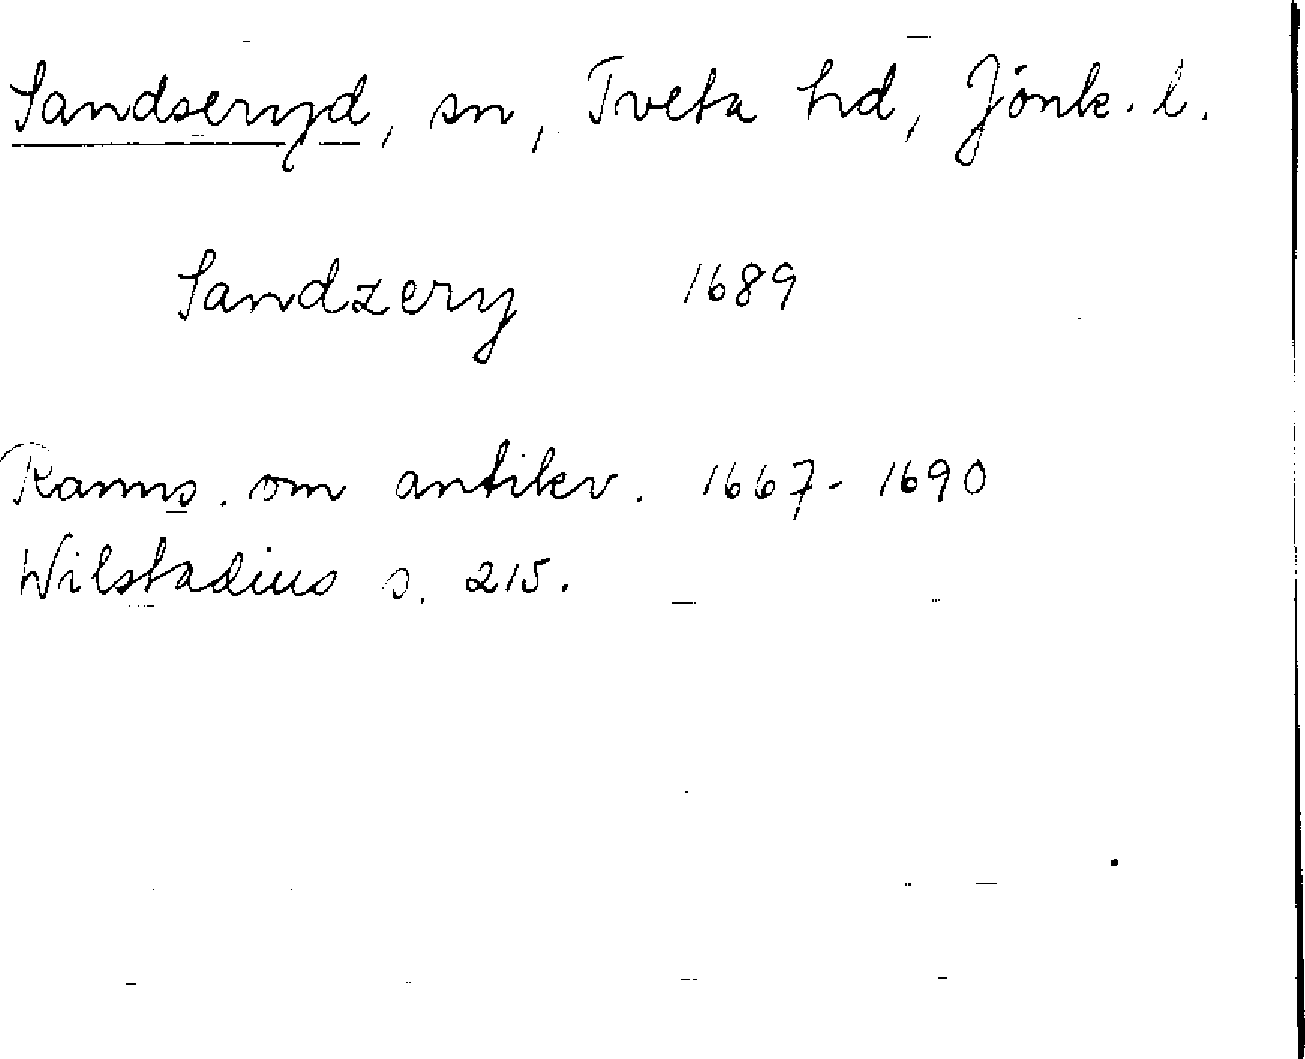 Sandseryd, sn, Tveta hd, Jönk. l.
Sandzery 1689
Ranns. om antikv. 1667-1690
Wilstadius s. 215.